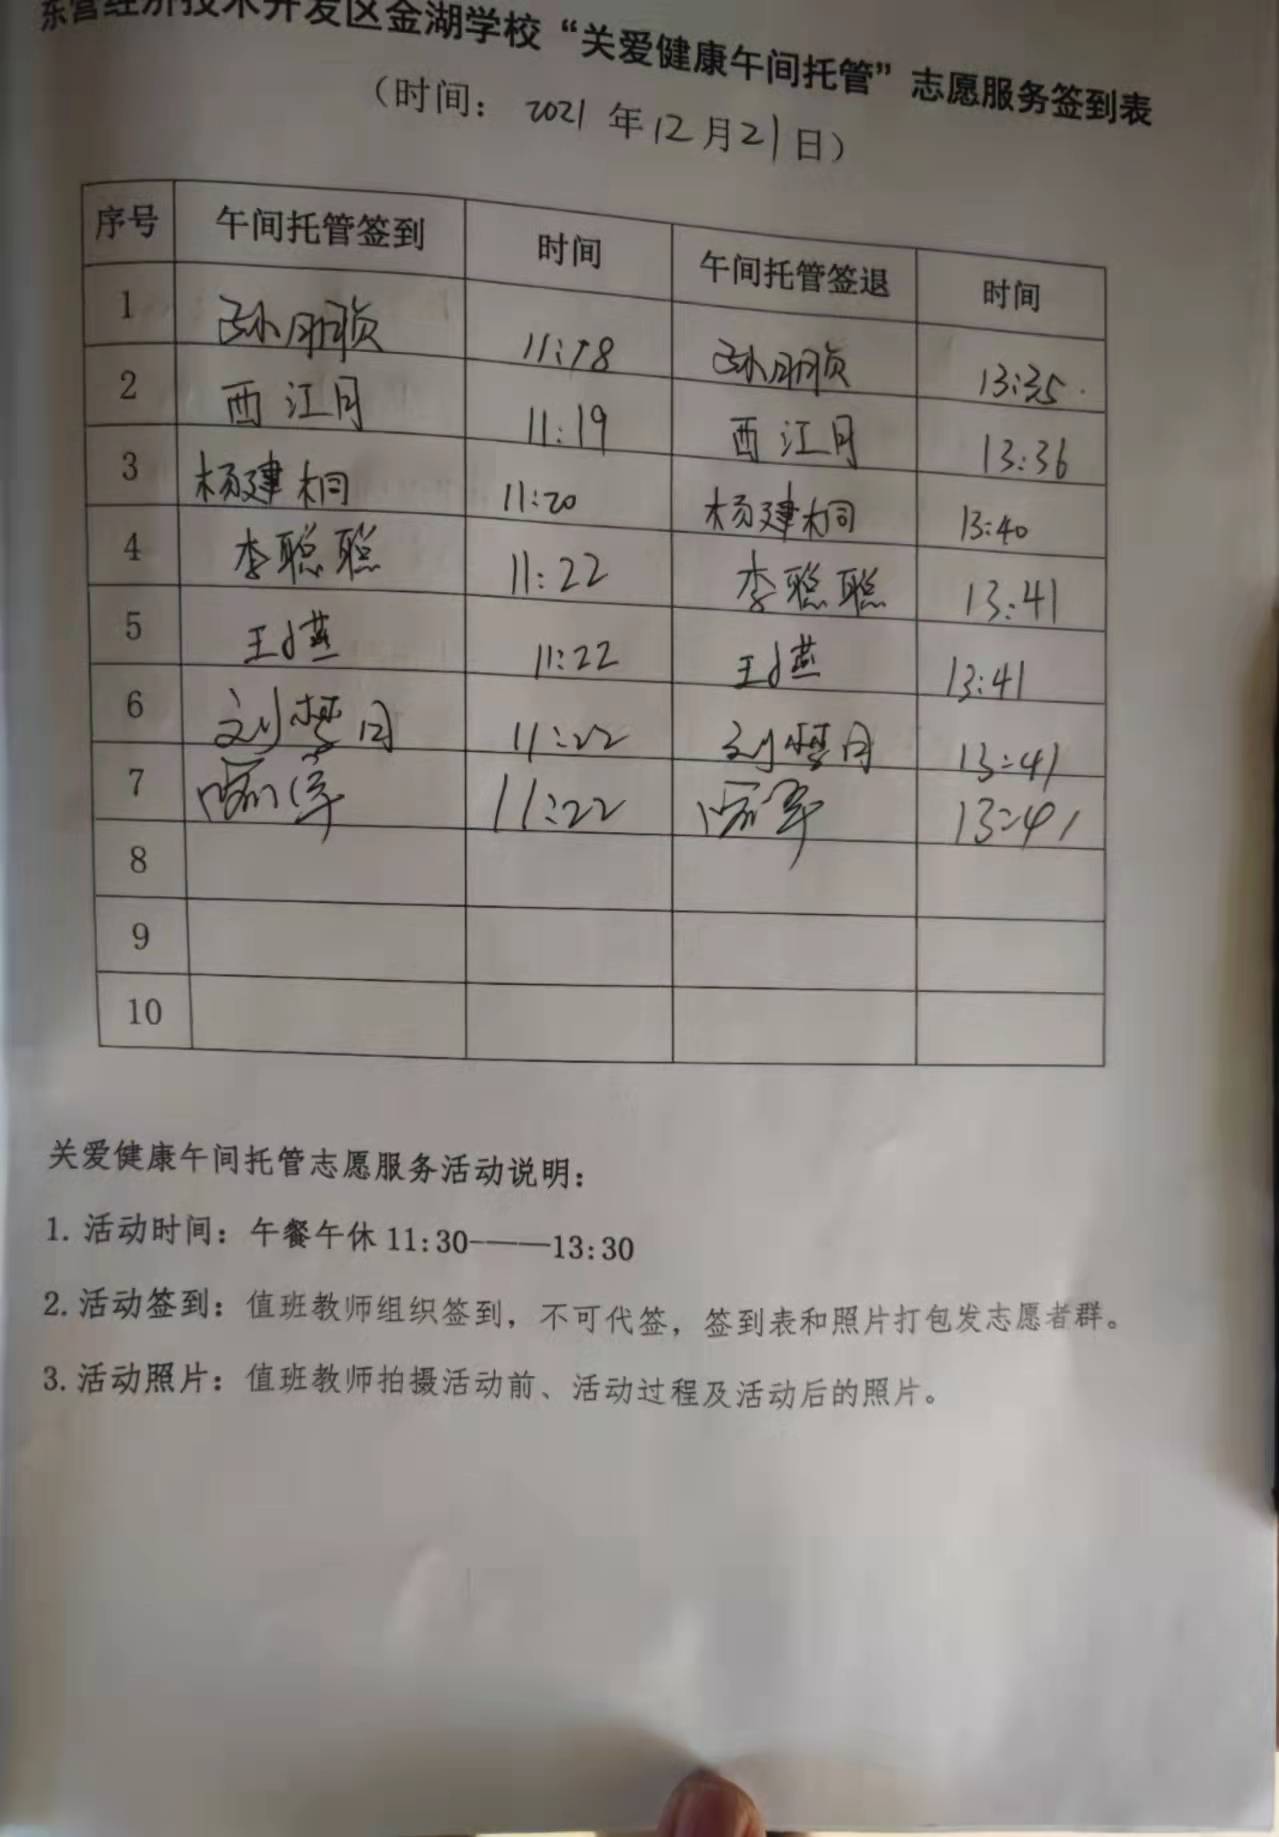 东营经济技术开发区金湖学校“关爱健康午间托管”志愿服务签到表
（时间：2021年12月21日）
序号 午间托管签到 时间 午间托管签退 时间
1 11:18 13:35
2 西江月 11:19 西江月 13:36
3 杨建桐 11:20 杨建桐 13:40
4 李聪聪 11:22 李聪聪 13:41
5 王小燕 11:22 王小燕 13:41
6 刘梦月 11:22 刘梦月 13:41
7 11:22 13:41
8
9
10
关爱健康午间托管志愿服务活动说明：
1. 活动时间：午餐午休 11:30———13:30
2. 活动签到：值班教师组织签到，不可代签，签到表和照片打包发志愿者群。
3. 活动照片：值班教师拍摄活动前、活动过程及活动后的照片。